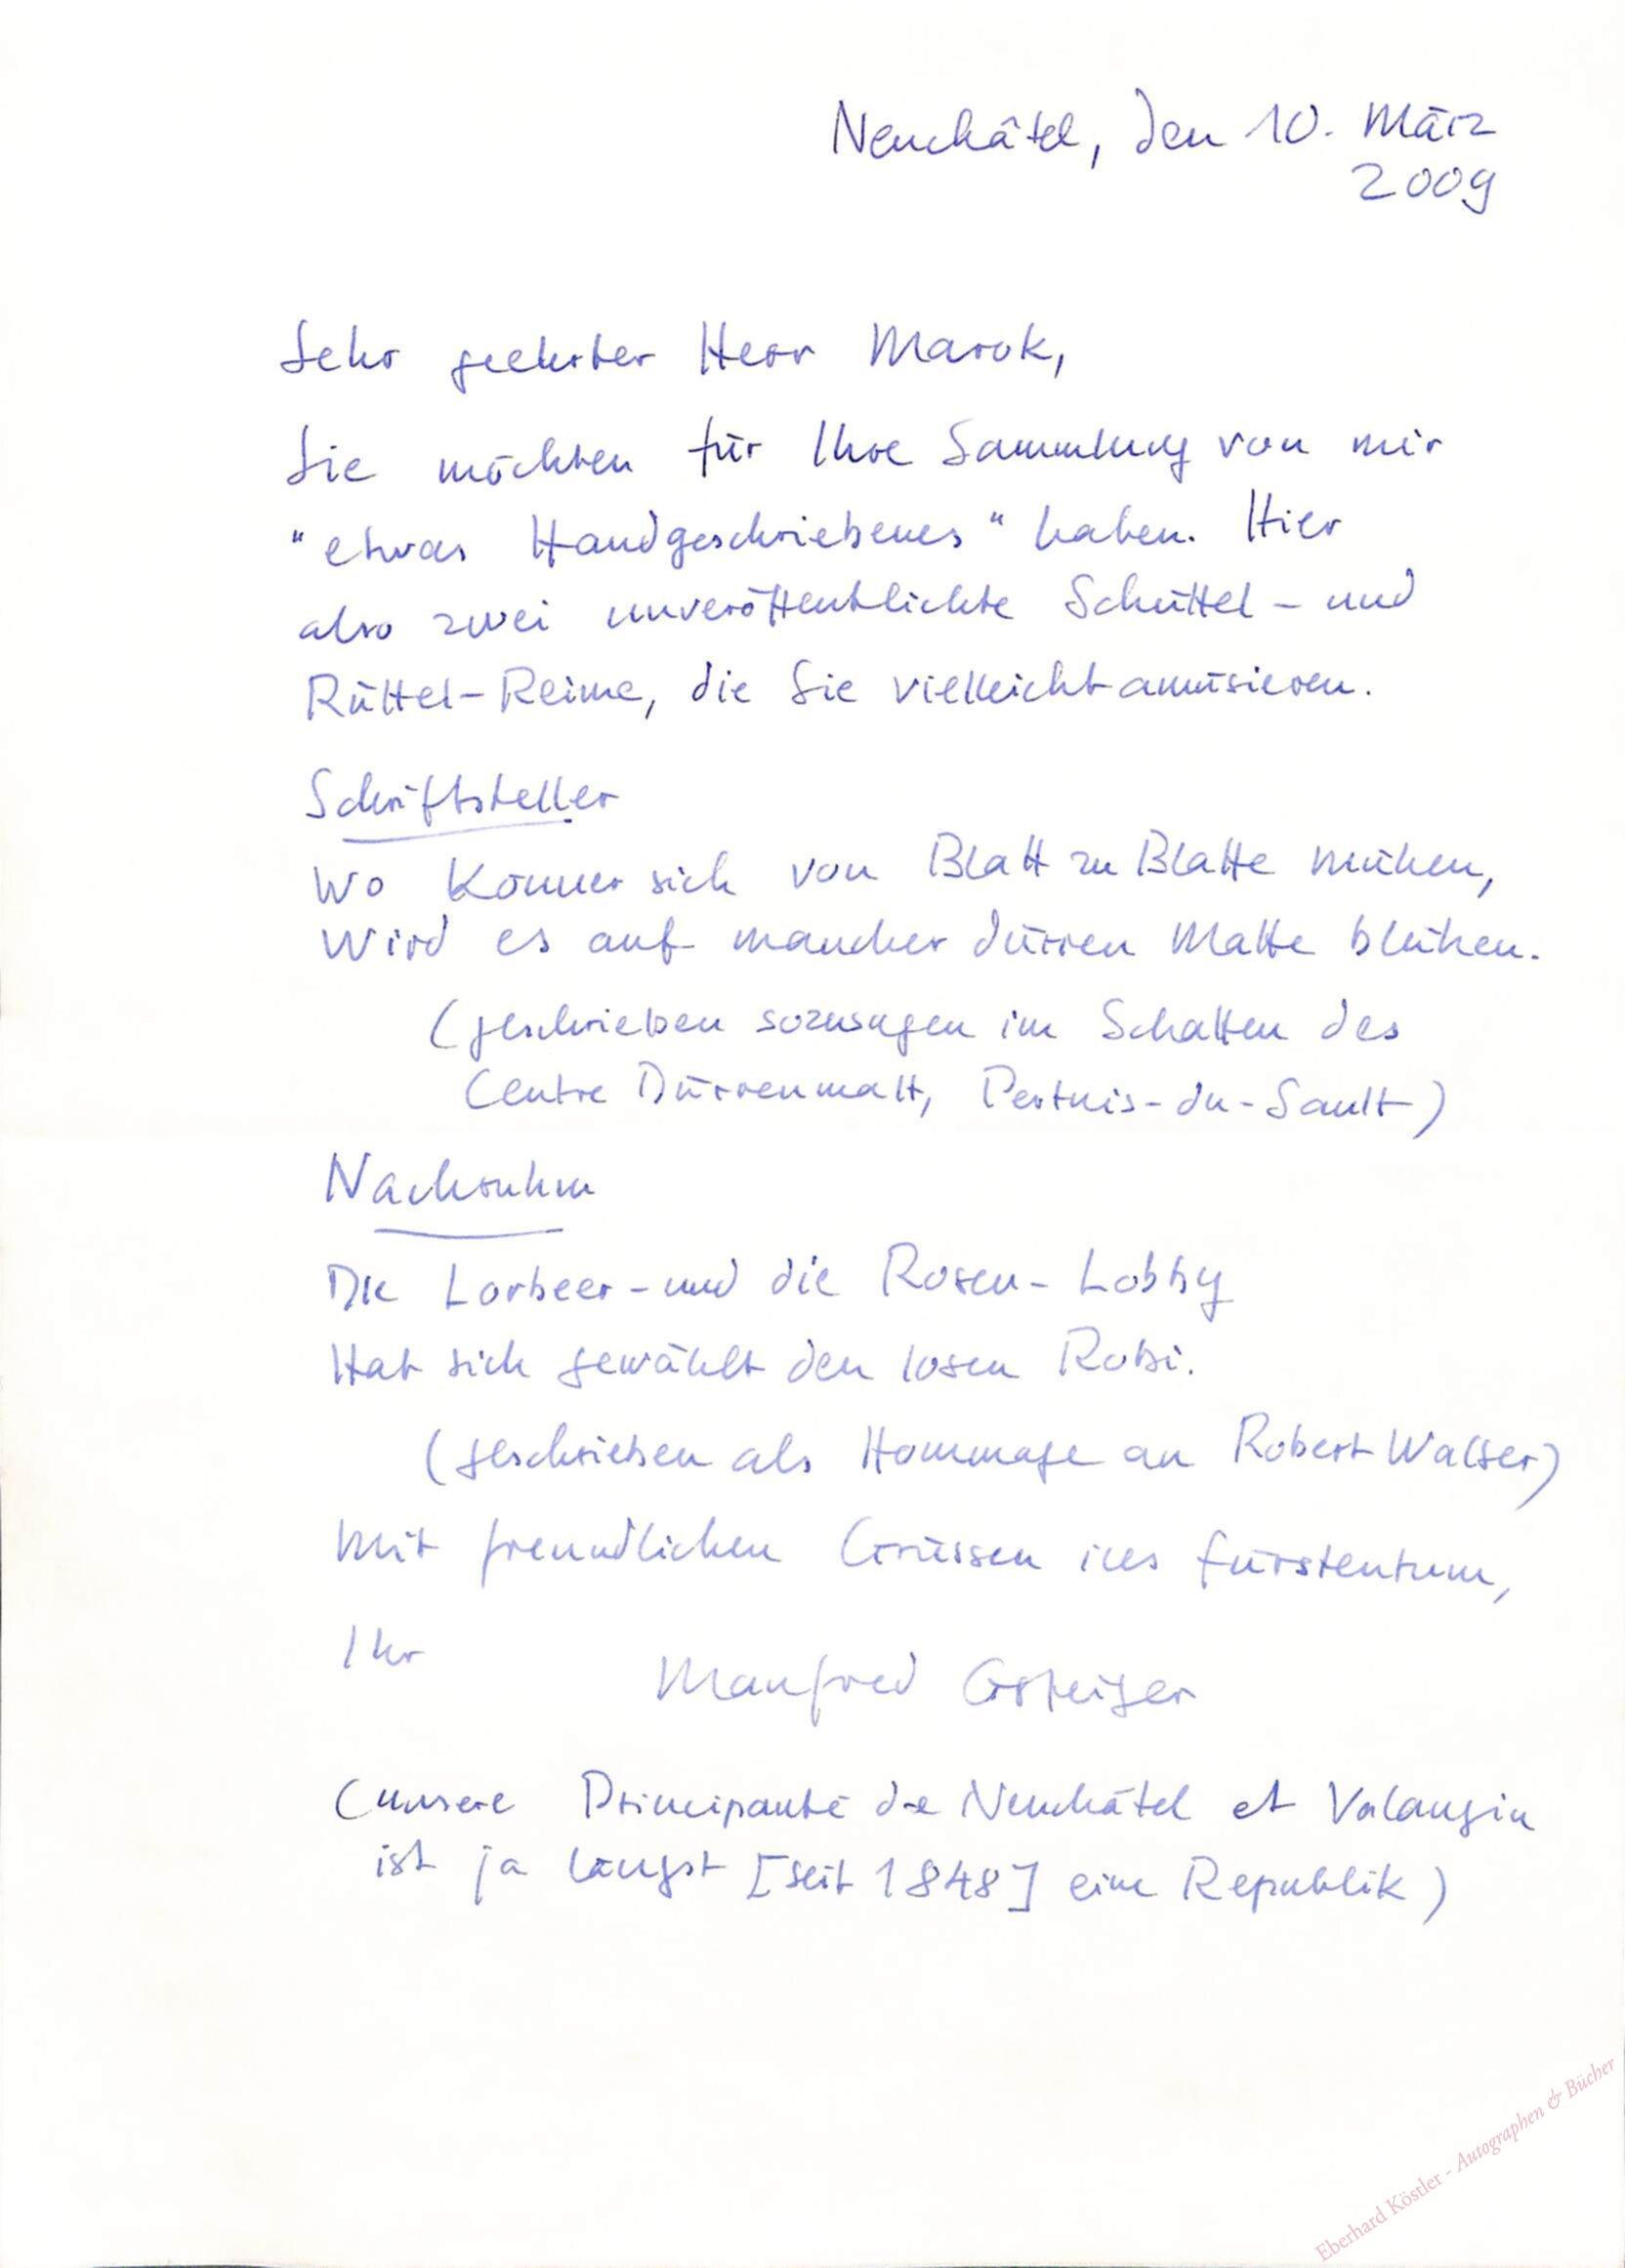 Neuchâtel, den 10. März
2009
Sehr geehrter Herr Marok,
Sie möchten für Ihre Sammlung von mir
"etwas Handgeschriebenes" haben. Hier
also zwei unveröffentlichte Schüttel- und
Rüttel-Reime, die Sie vielleicht amüsieren.
Schriftsteller
Wo Könner sich von Blatt zu Blatte mühen,
Wird es auf mancher dürren Matte blühen.
(geschrieben sozusagen im Schatten des
Centre Dürrenmatt, Pertuis-du-Sault)
Nachruhm
Die Lorbeer- und die Rosen-Lobby
Hat sich gewählt den losen Robi.
(geschrieben als Hommage an Robert Walser)
Mit freundlichen Grüssen ins Fürstentum,
Ihr
Manfred Gsteiger
(unsere Principauté de Neuchâtel et Valangin
ist ja längst [seit 1848] eine Republik)
Eberhard Köstler - Autographen & Bücher